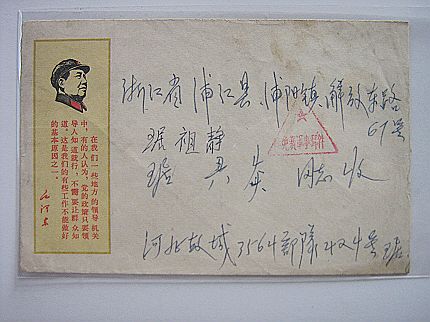 在我们一些地方的领导机关
中，有的人认为，党的政策只要领
导人知道就行，不需要让群众知
道。这是我们的有些工作不能做好
的基本原因之一。
毛泽东
浙江省浦江县浦阳镇解放东路
67号
琚祖静
琚 同志收
免费军事邮件
河北故城3564部隊424号琚